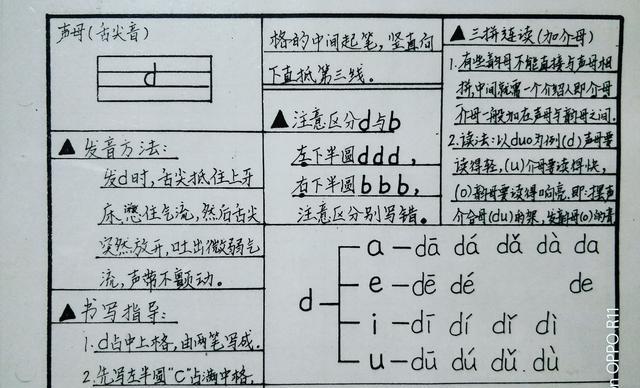 声母(舌尖音)
d
▲发音方法:
发d时,舌尖抵住上牙
床,憋住气流,然后舌尖
突然放开,吐出微弱气
流,声带不颤动。
▲书写指导:
1.d占中上格,由两笔写成.
2.先写左半圆"C"占满中格,
格的中间起笔,竖直向
下直抵第三线。
▲注意区分d与b
左下半圆ddd,
右下半圆bbb,
注意区分别写错。
▲三拼连读(加介母)
1.有些韵母不能直接与声母相
拼,中间就需一个介绍人即介母
介母一般加在声母与韵母之间.
2.读法:以duo为例(d)声母要
读得轻,(u)介母要读得快,
(o)韵母要读得响亮.即:摆声
介合母(du)的架,发韵母(o)的音
d
a—dā dá dǎ dà da
e—dē dé de
i—dī dí dǐ dì
u—dū dú dǔ dù
on OPPO R11